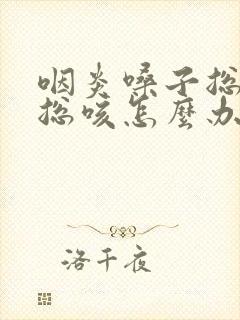 咽炎嗓子总
总咳怎麼办
洛千夜